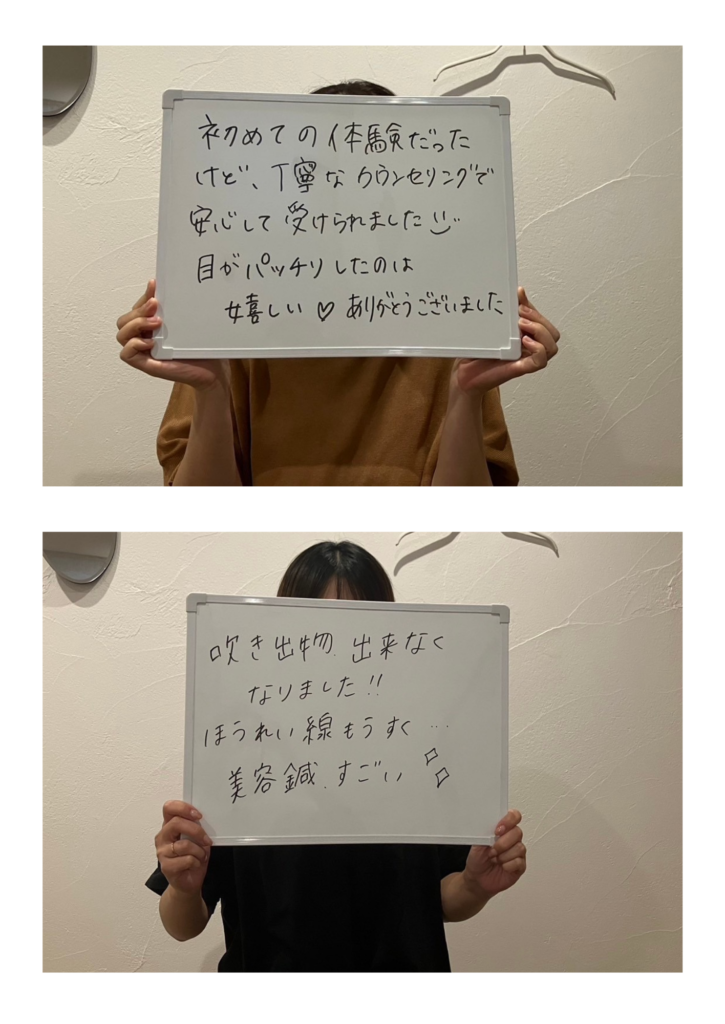 初めての体験だった
けど、丁寧なカウンセリングで
安心して受けられました
目がパッチリしたのは
嬉しい♡ ありがとうございました
吹き出物、出来なく
なりました!!
ほうれい線もうすく…
美容鍼、すごい